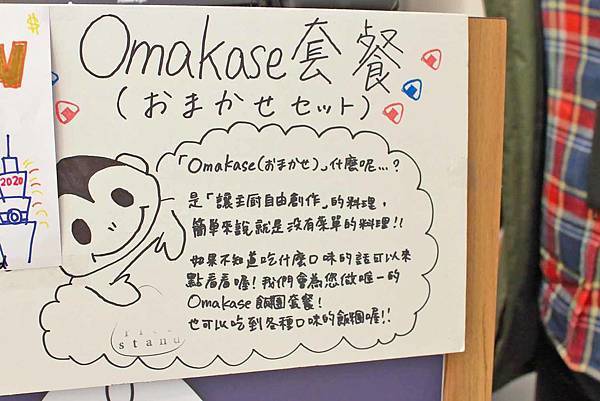 Omakase套餐
(おまかせセット)
「Omakase(おまかせ)」什麼呢...?
是「讓主廚自由創作」的料理,
簡單來說就是沒有菜單的料理!!
如果不知道吃什麼口味的話可以來
點看看喔!我們會為您做唯一的
Omakase飯糰套餐!
也可以吃到各種口味的飯糰喔!!
stand
2020